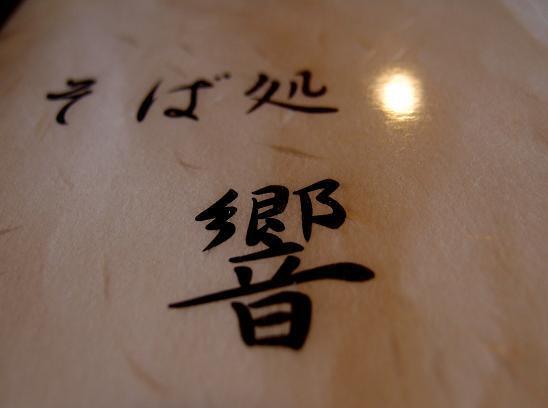 そば処
響